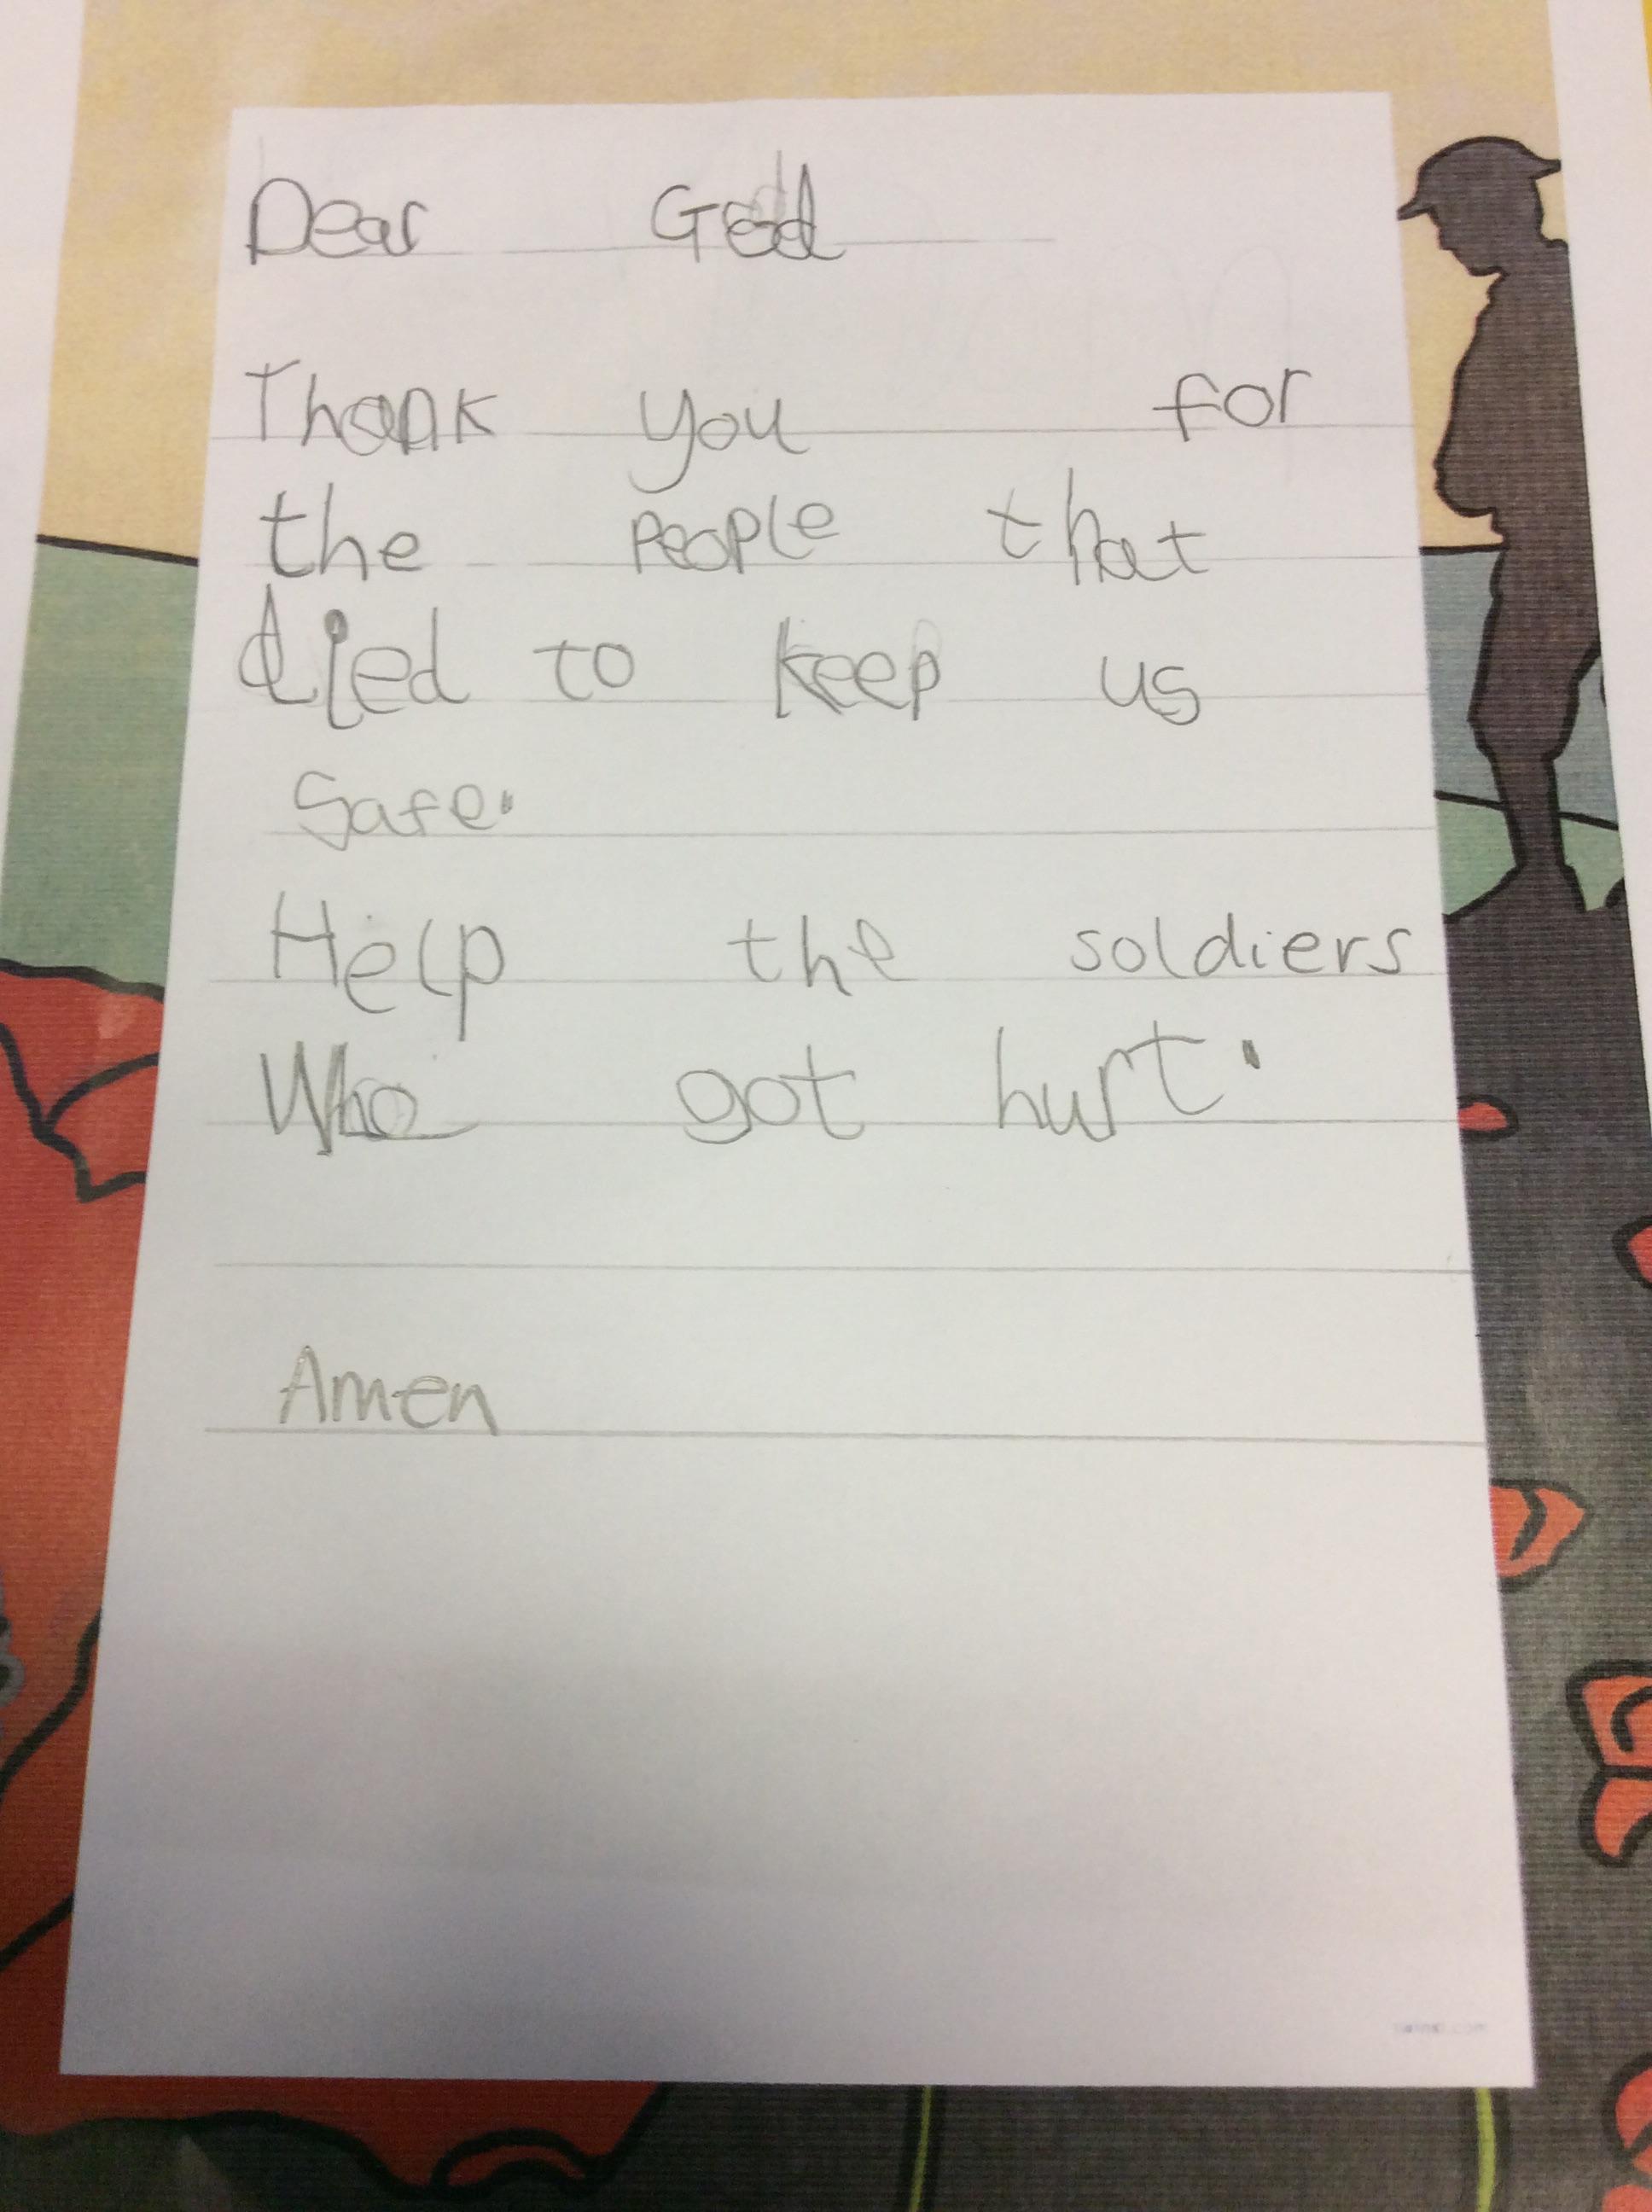 Dear God
Thank you for
the people that
died to keep us
Safe.
Help the soldiers
Who got hurt.
Amen